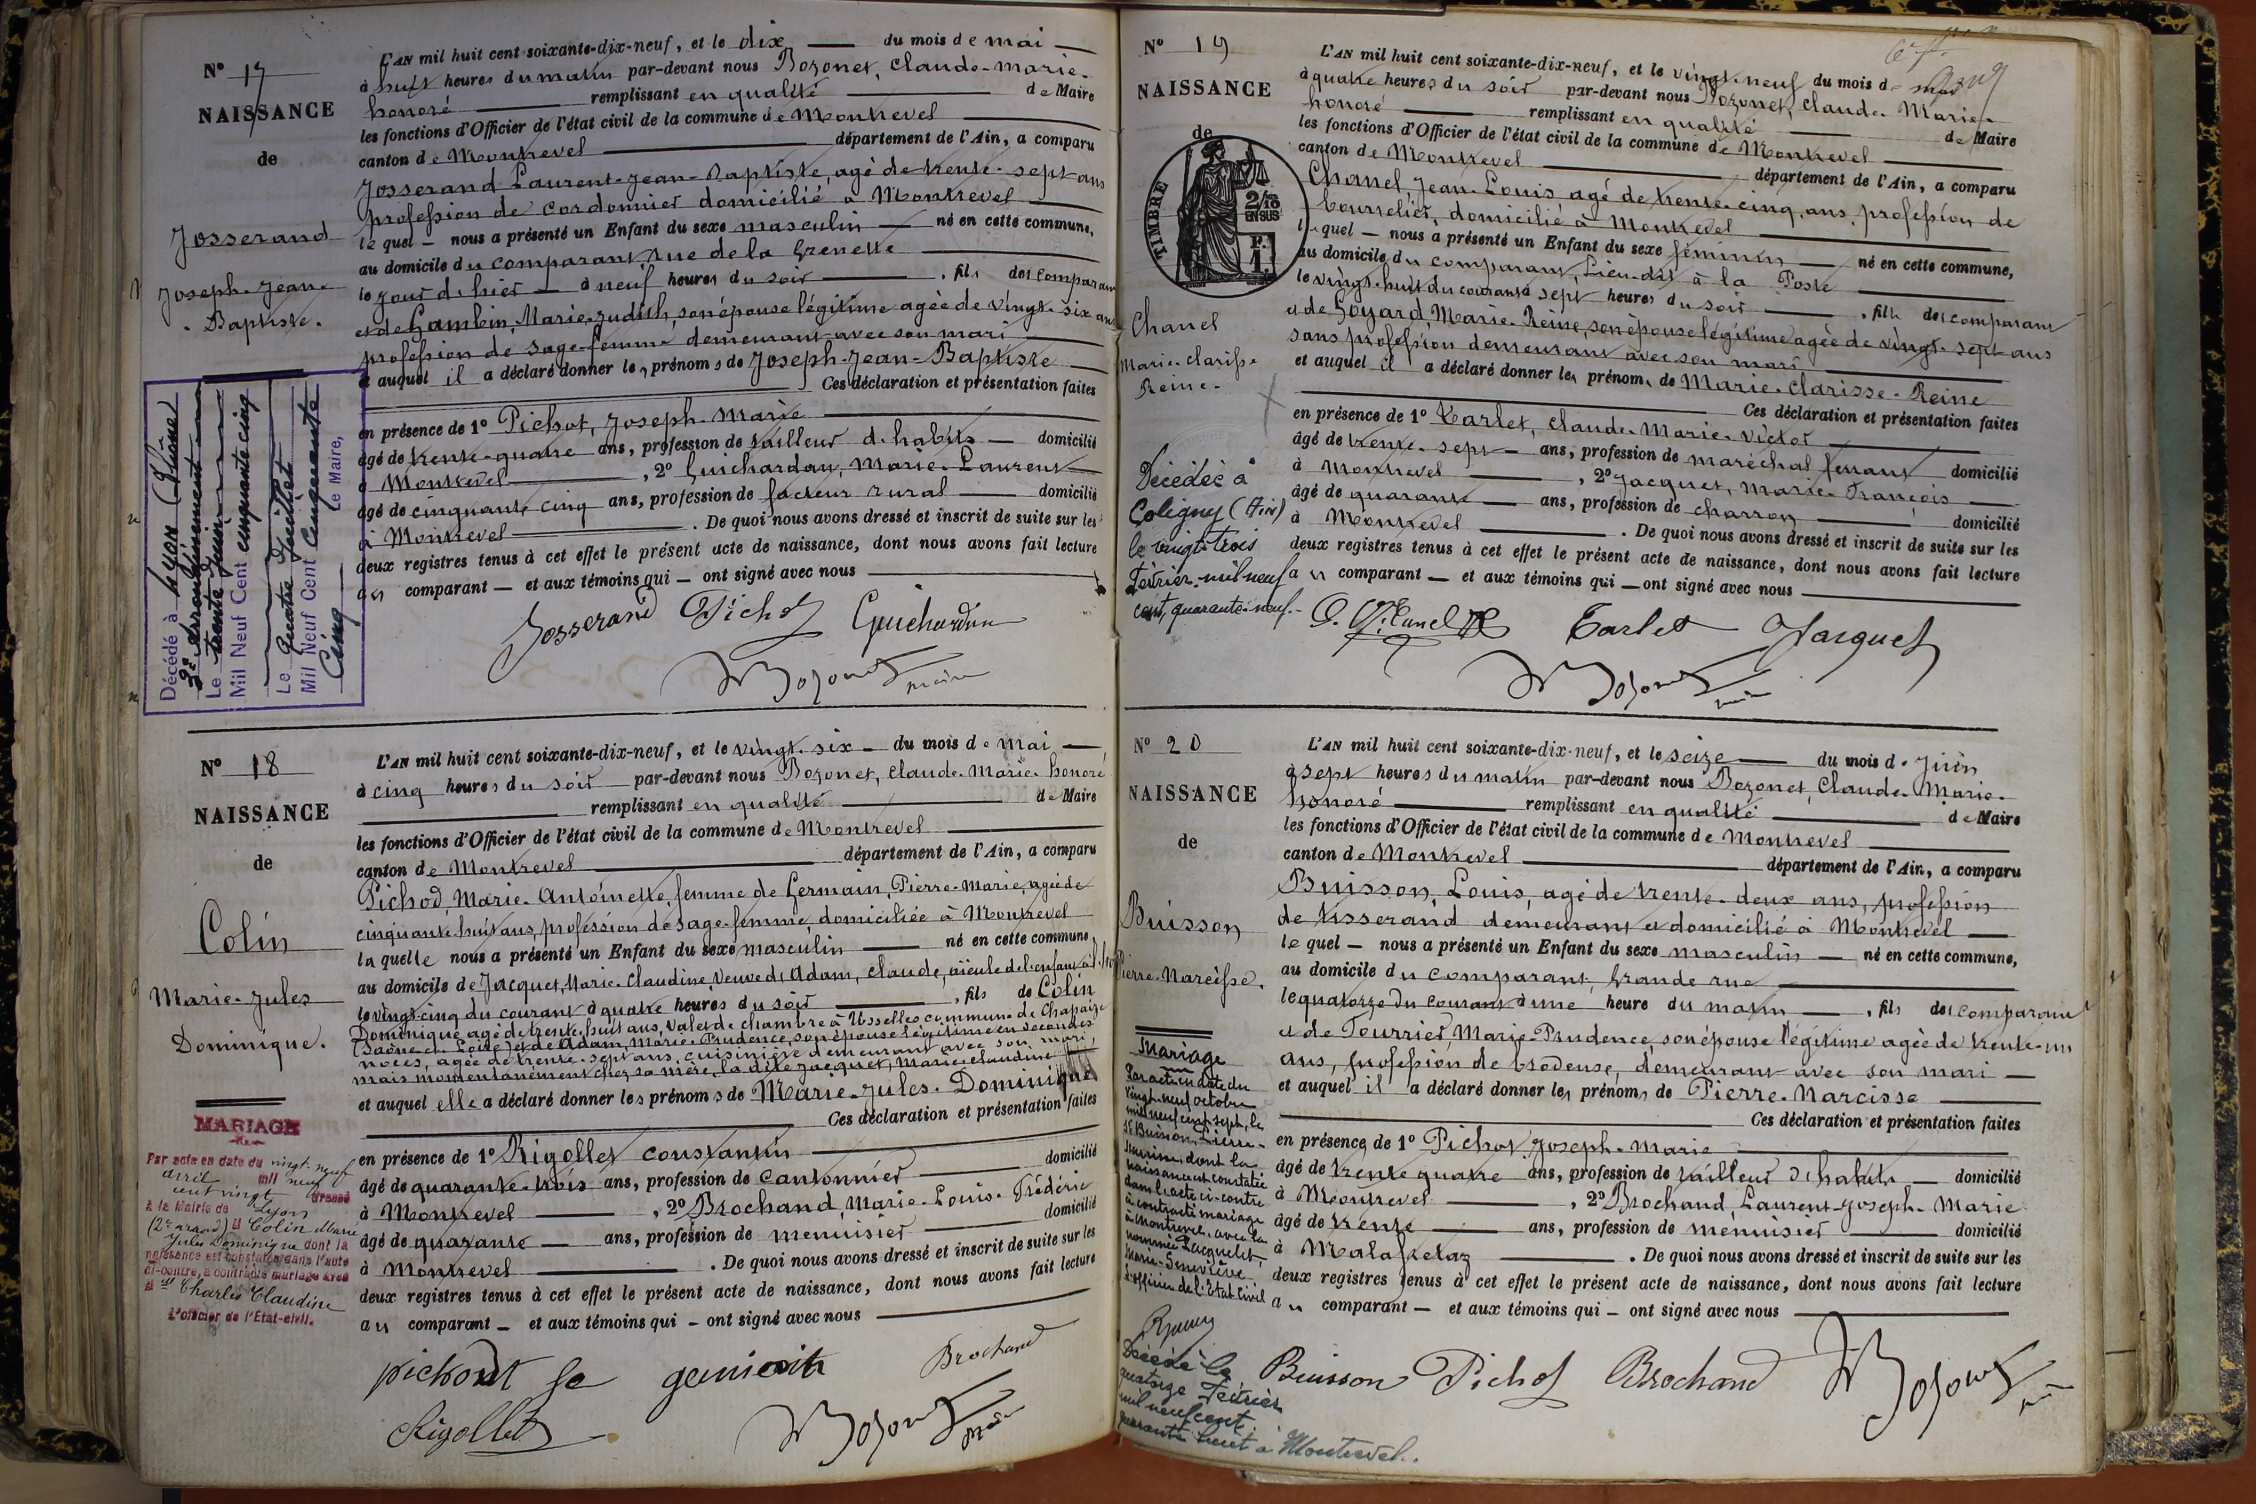 N° 17
NAISSANCE
de
Josserand
Joseph-Jean-
Baptiste.
L'AN mil huit cent soixante-dix-neuf, et le dix du mois de mai
à huit heures du matin par-devant nous Bozonet, Claude-Marie-
honoré remplissant en qualité de Maire
les fonctions d'Officier de l'état civil de la commune de Montrevel
canton de Montrevel département de l'Ain, a comparu
Josserand Laurent-Jean-Baptiste, agé de trente-sept ans
profession de cordonnier domicilié à Montrevel
le quel nous a présenté un Enfant du sexe masculin né en cette commune,
au domicile du comparant rue de la Grenette
le jour d'hier à neuf heures du soir, fils des comparant
et de Gambin, Marie-Judith, son épouse légitime agée de vingt-six ans
profession de sage-femme demeurant avec son mari
et auquel il a déclaré donner les prénoms de Joseph-Jean-Baptiste
Ces déclaration et présentation faites
en présence de 1° Pichot, Joseph-Marie
âgé de trente-quatre ans, profession de tailleur d'habits domicilié
à Montrevel, 2° Guichardan, Marie-Laurent
âgé de cinquante cinq ans, profession de facteur rural domicilié
à Montrevel. De quoi nous avons dressé et inscrit de suite sur les
deux registres tenus à cet effet le présent acte de naissance, dont nous avons fait lecture
au comparant et aux témoins qui ont signé avec nous
Josserand Pichot Guichardan
Bozonet maire
Décédé à Lyon (Rhône)
3e Arrondissement
Le trente Juin
Mil Neuf Cent cinquante cinq
Le quatre Juillet
Mil Neuf Cent Cinquante
Cinq Le Maire,
N° 18
NAISSANCE
de
Colin
Marie-Jules
Dominique.
L'AN mil huit cent soixante-dix-neuf, et le vingt-six du mois de mai
à cinq heures du soir par-devant nous Bozonet, Claude-Marie-honoré
remplissant en qualité de Maire
les fonctions d'Officier de l'état civil de la commune de Montrevel
canton de Montrevel département de l'Ain, a comparu
Pichod, Marie-Antoinette, femme de Germain, Pierre-Marie, agée de
cinquante-huit ans, profession de sage-femme, domiciliée à Montrevel
la quelle nous a présenté un Enfant du sexe masculin né en cette commune,
au domicile de Jacquet, Marie-Claudine, veuve de Adam, Claude, aïeule de l'enfant
le vingt cinq du courant à quatre heures du soir, fils de Colin
Dominique agé de trente-huit ans, valet de chambre à Uxelles commune de Chapaize
(Saône et Loire) et de Adam, Marie-Prudence, son épouse légitime en secondes
noces, agée de trente-sept ans, cuisinière demeurant avec son mari,
mais momentanément chez sa mère, la dite Jacquet, Marie-Claudine
et auquel elle a déclaré donner les prénoms de Marie-Jules-Dominique
Ces déclaration et présentation faites
en présence de 1° Rigollet Constantin
âgé de quarante-trois ans, profession de Cantonnier domicilié
à Montrevel, 2° Brochand, Marie-Louis-Frédéric
âgé de quarante ans, profession de menuisier domicilié
à Montrevel. De quoi nous avons dressé et inscrit de suite sur les
deux registres tenus à cet effet le présent acte de naissance, dont nous avons fait lecture
au comparant et aux témoins qui ont signé avec nous
pichodt fe Brochand
Rigollet Bozonet maire
MARIAGE
Par acte en date du vingt-neuf
avril mil neuf
cent vingt dressé
à la Mairie de Lyon
(2e arrond) M Colin Marie
Jules Dominique dont la
naissance est constatée dans l'acte
ci-contre, a contracté mariage avec
M lle Charles Claudine
L'officier de l'Etat-civil.
N° 19
NAISSANCE
de
TIMBRE
2/10 EN SUS
F. 1.
Chanel
Marie-Clarisse
Reine.
L'AN mil huit cent soixante-dix-neuf, et le vingt-neuf du mois de mai
à quatre heures du soir par-devant nous Bozonet, Claude-Marie-
honoré remplissant en qualité de Maire
les fonctions d'Officier de l'état civil de la commune de Montrevel
canton de Montrevel département de l'Ain, a comparu
Chanel, Jean-Louis, agé de trente-cinq ans, profession de
bourrelier, domicilié à Montrevel
le quel nous a présenté un Enfant du sexe féminin né en cette commune,
au domicile du comparant, Lieu-dit à la Poste
le vingt-huit du courant à sept heures du soir, fille des comparant
et de Goyard, Marie-Reine, son épouse légitime agée de vingt-sept ans
sans profession demeurant avec son mari
et auquel il a déclaré donner les prénoms de Marie-Clarisse-Reine
Ces déclaration et présentation faites
en présence de 1° Tarlet, Claude-Marie-Victor
âgé de trente-sept ans, profession de maréchal ferrant domicilié
à Montrevel, 2° Jacquet, Marie-François
âgé de quarante ans, profession de charron domicilié
à Montrevel. De quoi nous avons dressé et inscrit de suite sur les
deux registres tenus à cet effet le présent acte de naissance, dont nous avons fait lecture
au comparant et aux témoins qui ont signé avec nous
Chanel Tarlet Jacquet
Bozonet maire
Décédée à
Coligny (Ain)
le vingt-trois
Février mil neuf
cent quarante-neuf.
N° 20
NAISSANCE
de
Buisson
Pierre-Narcisse.
L'AN mil huit cent soixante-dix-neuf, et le seize du mois de Juin
à sept heures du matin par-devant nous Bozonet, Claude-Marie-
honoré remplissant en qualité de Maire
les fonctions d'Officier de l'état civil de la commune de Montrevel
canton de Montrevel département de l'Ain, a comparu
Buisson, Louis, agé de trente-deux ans, profession
de tisserand demeurant et domicilié à Montrevel
le quel nous a présenté un Enfant du sexe masculin né en cette commune,
au domicile du comparant, Grande rue
le quatorze du courant à une heure du matin, fils des comparant
et de Fourrier, Marie-Prudence, son épouse légitime agée de trente-un
ans, profession de brodeuse, demeurant avec son mari
et auquel il a déclaré donner les prénoms de Pierre-Narcisse
Ces déclaration et présentation faites
en présence de 1° Pichot Joseph-Marie
âgé de trente quatre ans, profession de tailleur d'habits domicilié
à Montrevel, 2° Brochand, Laurent-Joseph-Marie
âgé de trente ans, profession de menuisier domicilié
à Malafretaz. De quoi nous avons dressé et inscrit de suite sur les
deux registres tenus à cet effet le présent acte de naissance, dont nous avons fait lecture
au comparant et aux témoins qui ont signé avec nous
Buisson Pichot Brochand Bozonet
Mariage
Par acte en date du
vingt-neuf octobre
mil neuf cent sept, le
Sr Buisson, Pierre-
Narcisse dont la
naissance est constatée
dans l'acte ci-contre
a contracté mariage
à Montrevel avec la
nommée Pacquelet,
Marie-Geneviève
L'officier de l'Etat Civil
Décédé le
quatorze Février
mil neuf cent
quarante huit à Montrevel.